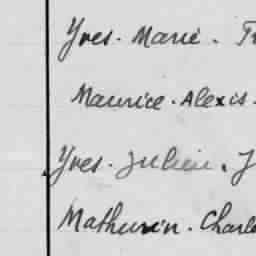 Yves. Marie. Fr
Maurice. Alexis.
Yves. Julien. J
Mathurin. Charle